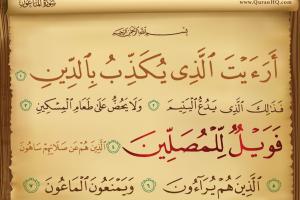 سورة الماعون
www.QuranHQ.com
بِسْمِ اللَّهِ الرَّحْمَٰنِ الرَّحِيمِ
أَرَءَيْتَ ٱلَّذِى يُكَذِّبُ بِٱلدِّينِ ١
فَذَٰلِكَ ٱلَّذِى يَدُعُّ ٱلْيَتِيمَ ٢ وَلَا يَحُضُّ عَلَىٰ طَعَامِ ٱلْمِسْكِينِ ٣
فَوَيْلٌ لِّلْمُصَلِّينَ ٤ ٱلَّذِينَ هُمْ عَن صَلَاتِهِمْ سَاهُونَ
٥ ٱلَّذِينَ هُمْ يُرَآءُونَ ٦ وَيَمْنَعُونَ ٱلْمَاعُونَ ٧